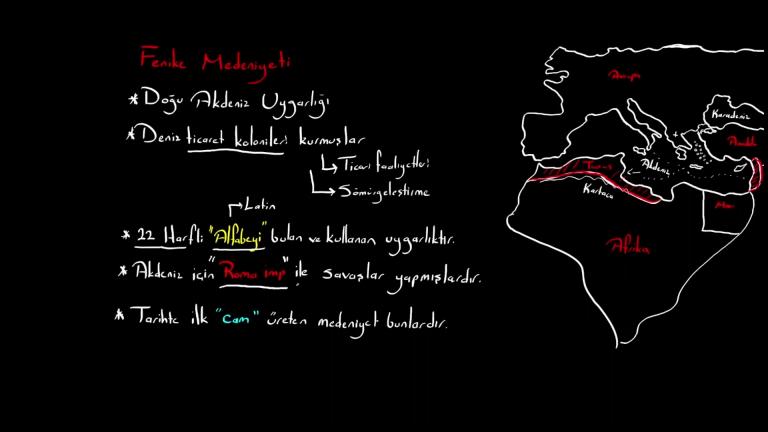 Fenike Medeniyeti
* Doğu Akdeniz Uygarlığı
* Deniz ticaret kolonileri kurmuşlar
Ticari faaliyetleri
Sömürgeleştirme
Latin
* 22 Harfli "Alfabeyi" bulan ve kullanan uygarlıktır.
* Akdeniz için "Roma imp" ile savaşlar yapmışlardır.
* Tarihte ilk "cam" üreten medeniyet bunlardır.
Avrupa
Karadeniz
Akdeniz
Kartaca
Afrika